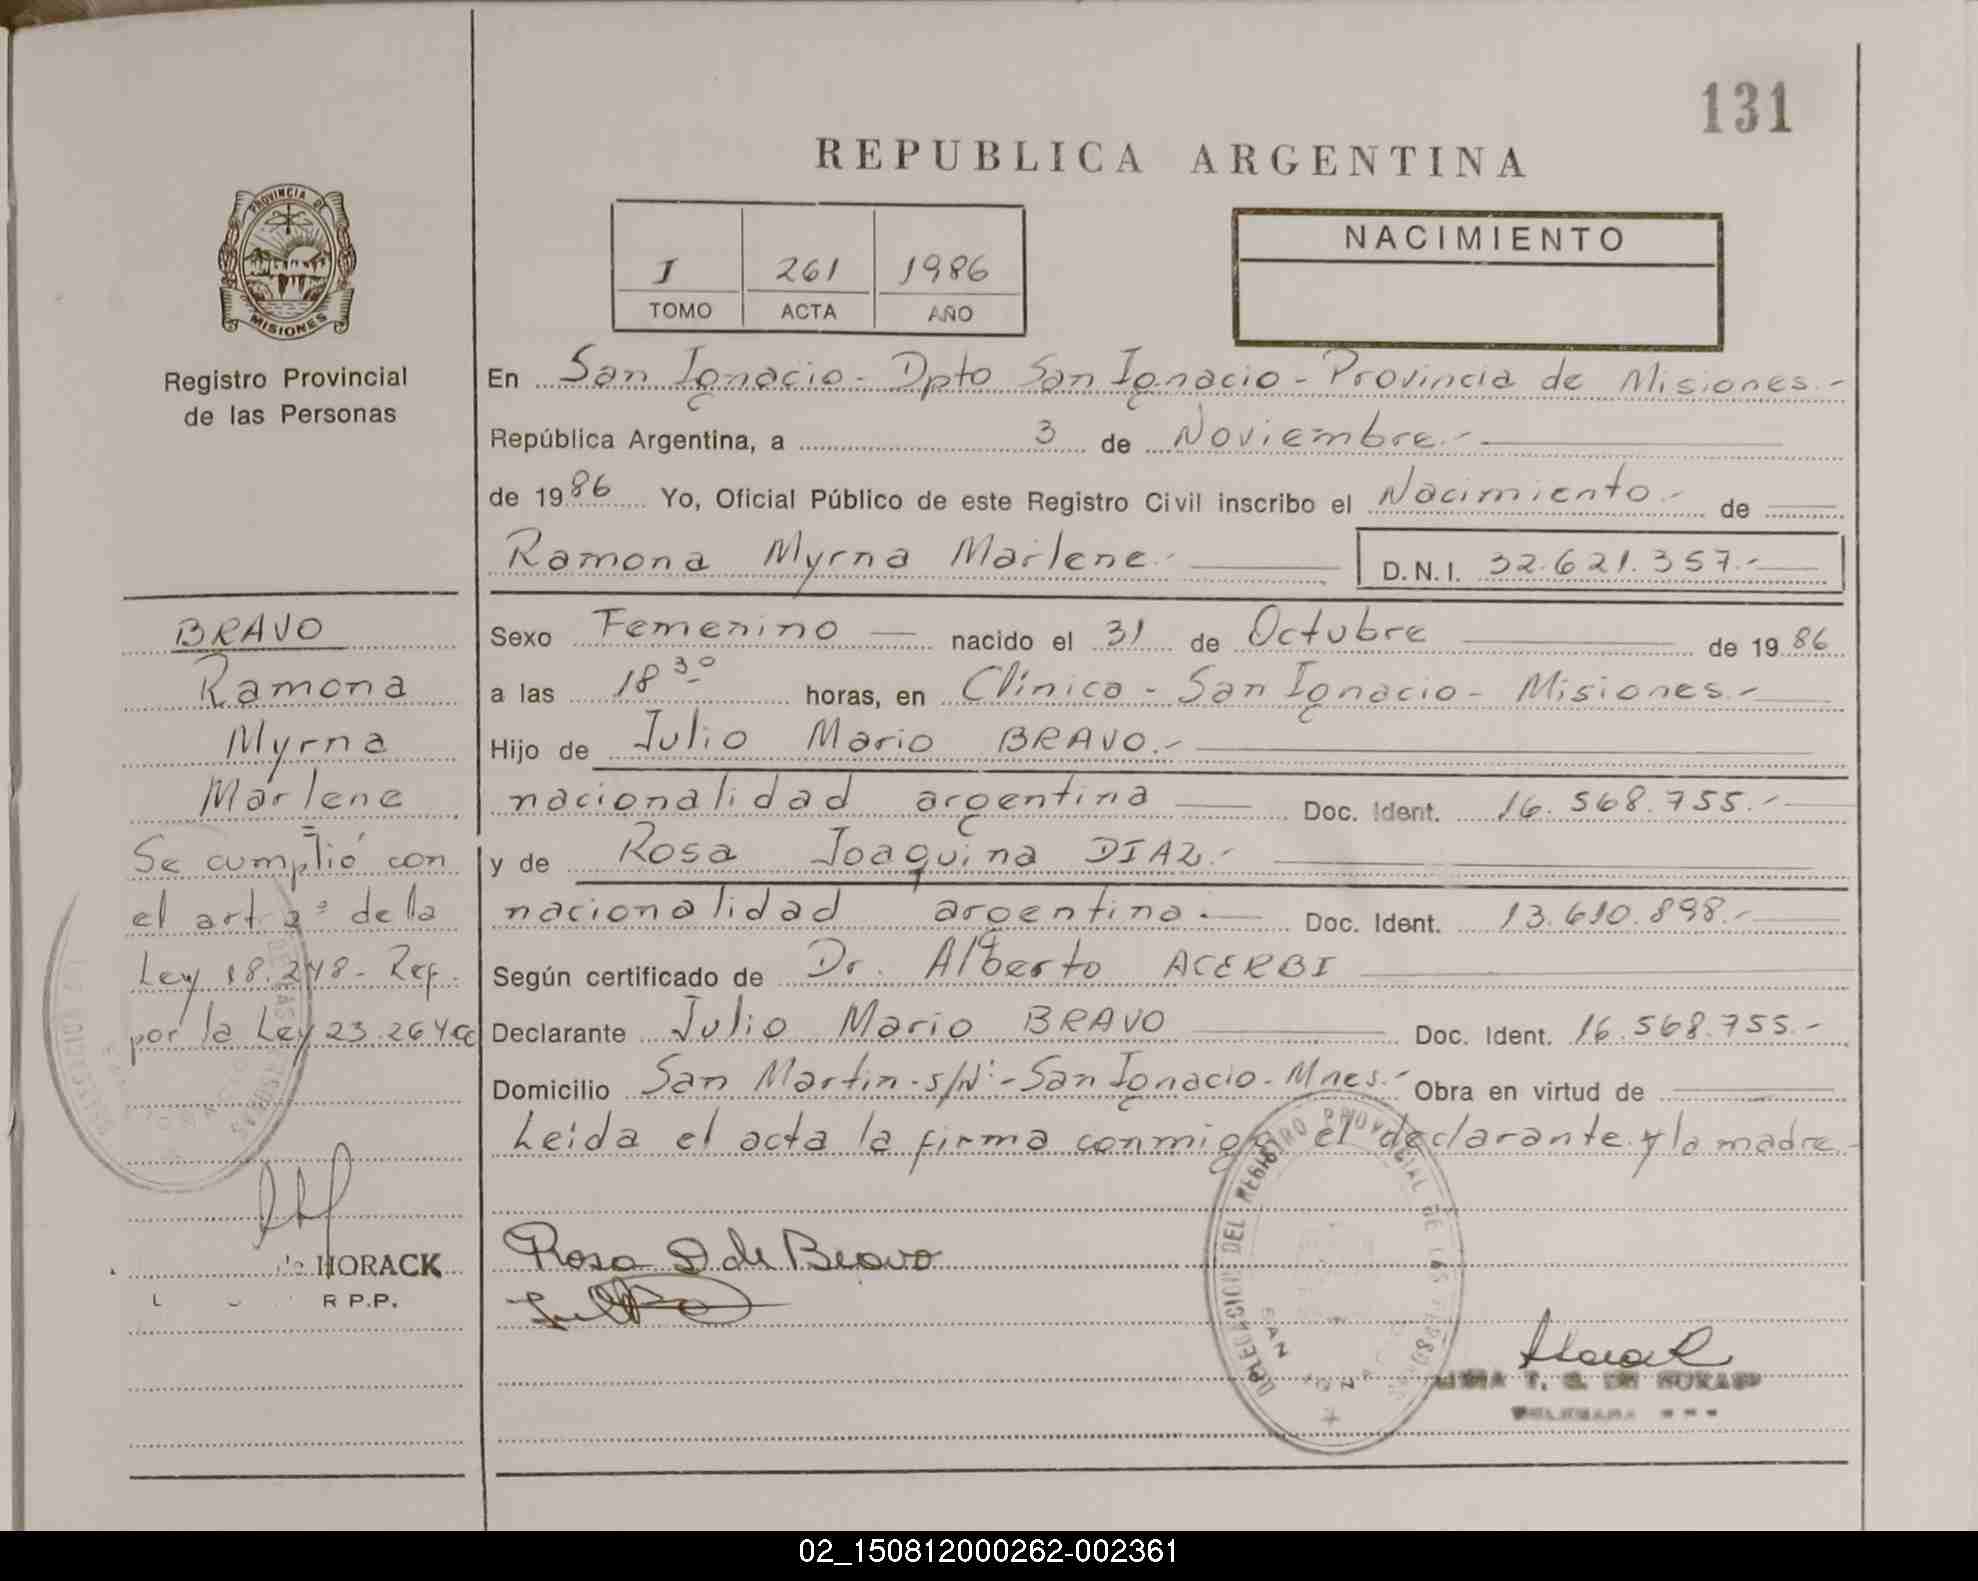 131
REPUBLICA ARGENTINA
PROVINCIA DE
MISIONES
Registro Provincial
de las Personas
I 261 1986
TOMO ACTA AÑO
NACIMIENTO
En San Ignacio - Dpto San Ignacio - Provincia de Misiones.-
República Argentina, a 3 de Noviembre.-
de 1986 Yo, Oficial Público de este Registro Civil inscribo el Nacimiento.- de
Ramona Myrna Marlene.- D.N.I. 32.621.357.-
Sexo Femenino nacido el 31 de Octubre de 1986
a las 18 30 horas, en Clínica - San Ignacio - Misiones.-
Hijo de Julio Mario BRAVO.-
nacionalidad argentina Doc. Ident. 16.568.755.-
y de Rosa Joaquina DIAZ.-
nacionalidad argentina.- Doc. Ident. 13.610.898.-
Según certificado de Dr. Alberto ACERBI
Declarante Julio Mario BRAVO Doc. Ident. 16.568.755.-
Domicilio San Martin - s/Nº - San Ignacio - Mnes.- Obra en virtud de
Leída el acta la firma conmigo el declarante y la madre.-
BRAVO
Ramona
Myrna
Marlene
Se cumplió con
el art 2º de la
Ley 18.248 - Ref.
por la Ley 23.264
HORACK
R P.P.
Rosa D de Bravo
DELEGACION DEL REGISTRO PROVINCIAL DE LAS PERSONAS
SAN IGNACIO
02_150812000262-002361